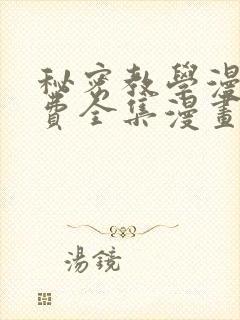 秘密教學漫
費全集漫畫
湯鏡